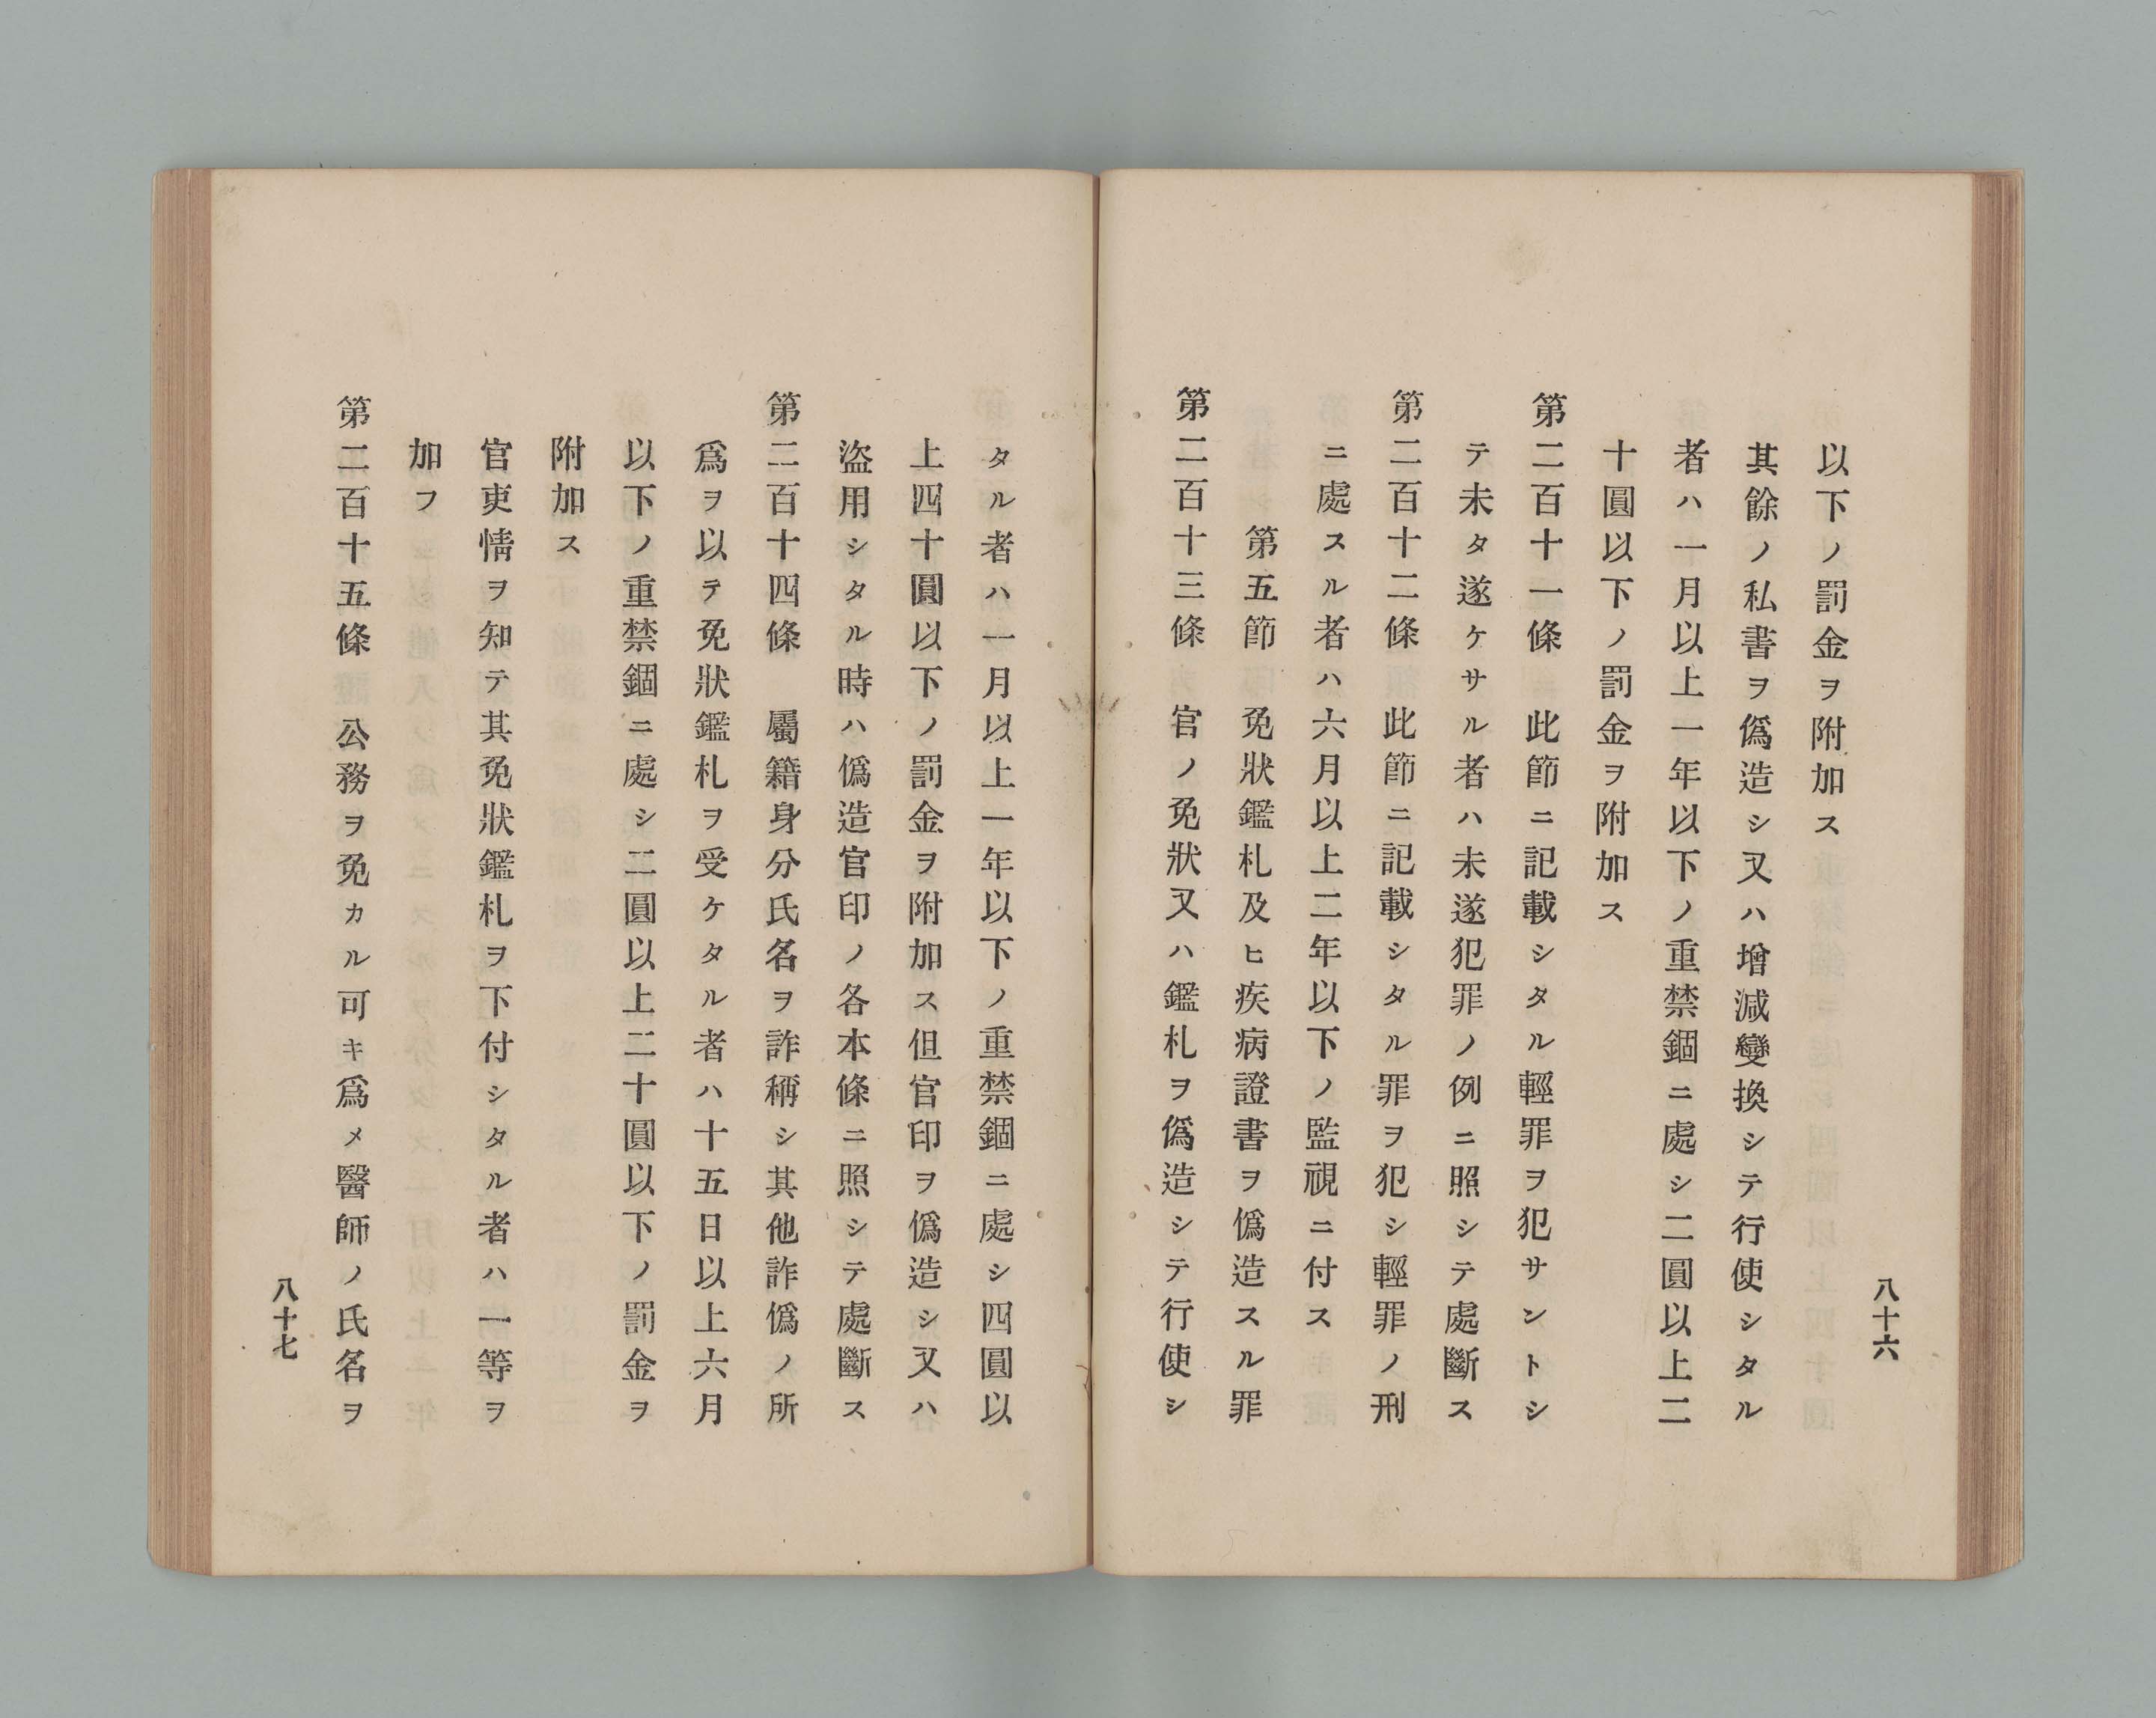 八十六
以下ノ罰金ヲ附加ス
其餘ノ私書ヲ僞造シ又ハ增減變換シテ行使シタル
者ハ一月以上一年以下ノ重禁錮ニ處シ二圓以上二
十圓以下ノ罰金ヲ附加ス
第二百十一條 此節ニ記載シタル輕罪ヲ犯サントシ
テ未タ遂ケサル者ハ未遂犯罪ノ例ニ照シテ處斷ス
第二百十二條 此節ニ記載シタル罪ヲ犯シ輕罪ノ刑
ニ處スル者ハ六月以上二年以下ノ監視ニ付ス
第五節 免狀鑑札及ヒ疾病證書ヲ僞造スル罪
第二百十三條 官ノ免狀又ハ鑑札ヲ僞造シテ行使シ
タル者ハ一月以上一年以下ノ重禁錮ニ處シ四圓以
上四十圓以下ノ罰金ヲ附加ス但官印ヲ僞造シ又ハ
盜用シタル時ハ僞造官印ノ各本條ニ照シテ處斷ス
第二百十四條 屬籍身分氏名ヲ詐稱シ其他詐僞ノ所
爲ヲ以テ免狀鑑札ヲ受ケタル者ハ十五日以上六月
以下ノ重禁錮ニ處シ二圓以上二十圓以下ノ罰金ヲ
附加ス
官吏情ヲ知テ其免狀鑑札ヲ下付シタル者ハ一等ヲ
加フ
第二百十五條 公務ヲ免カル可キ爲メ醫師ノ氏名ヲ
八十七